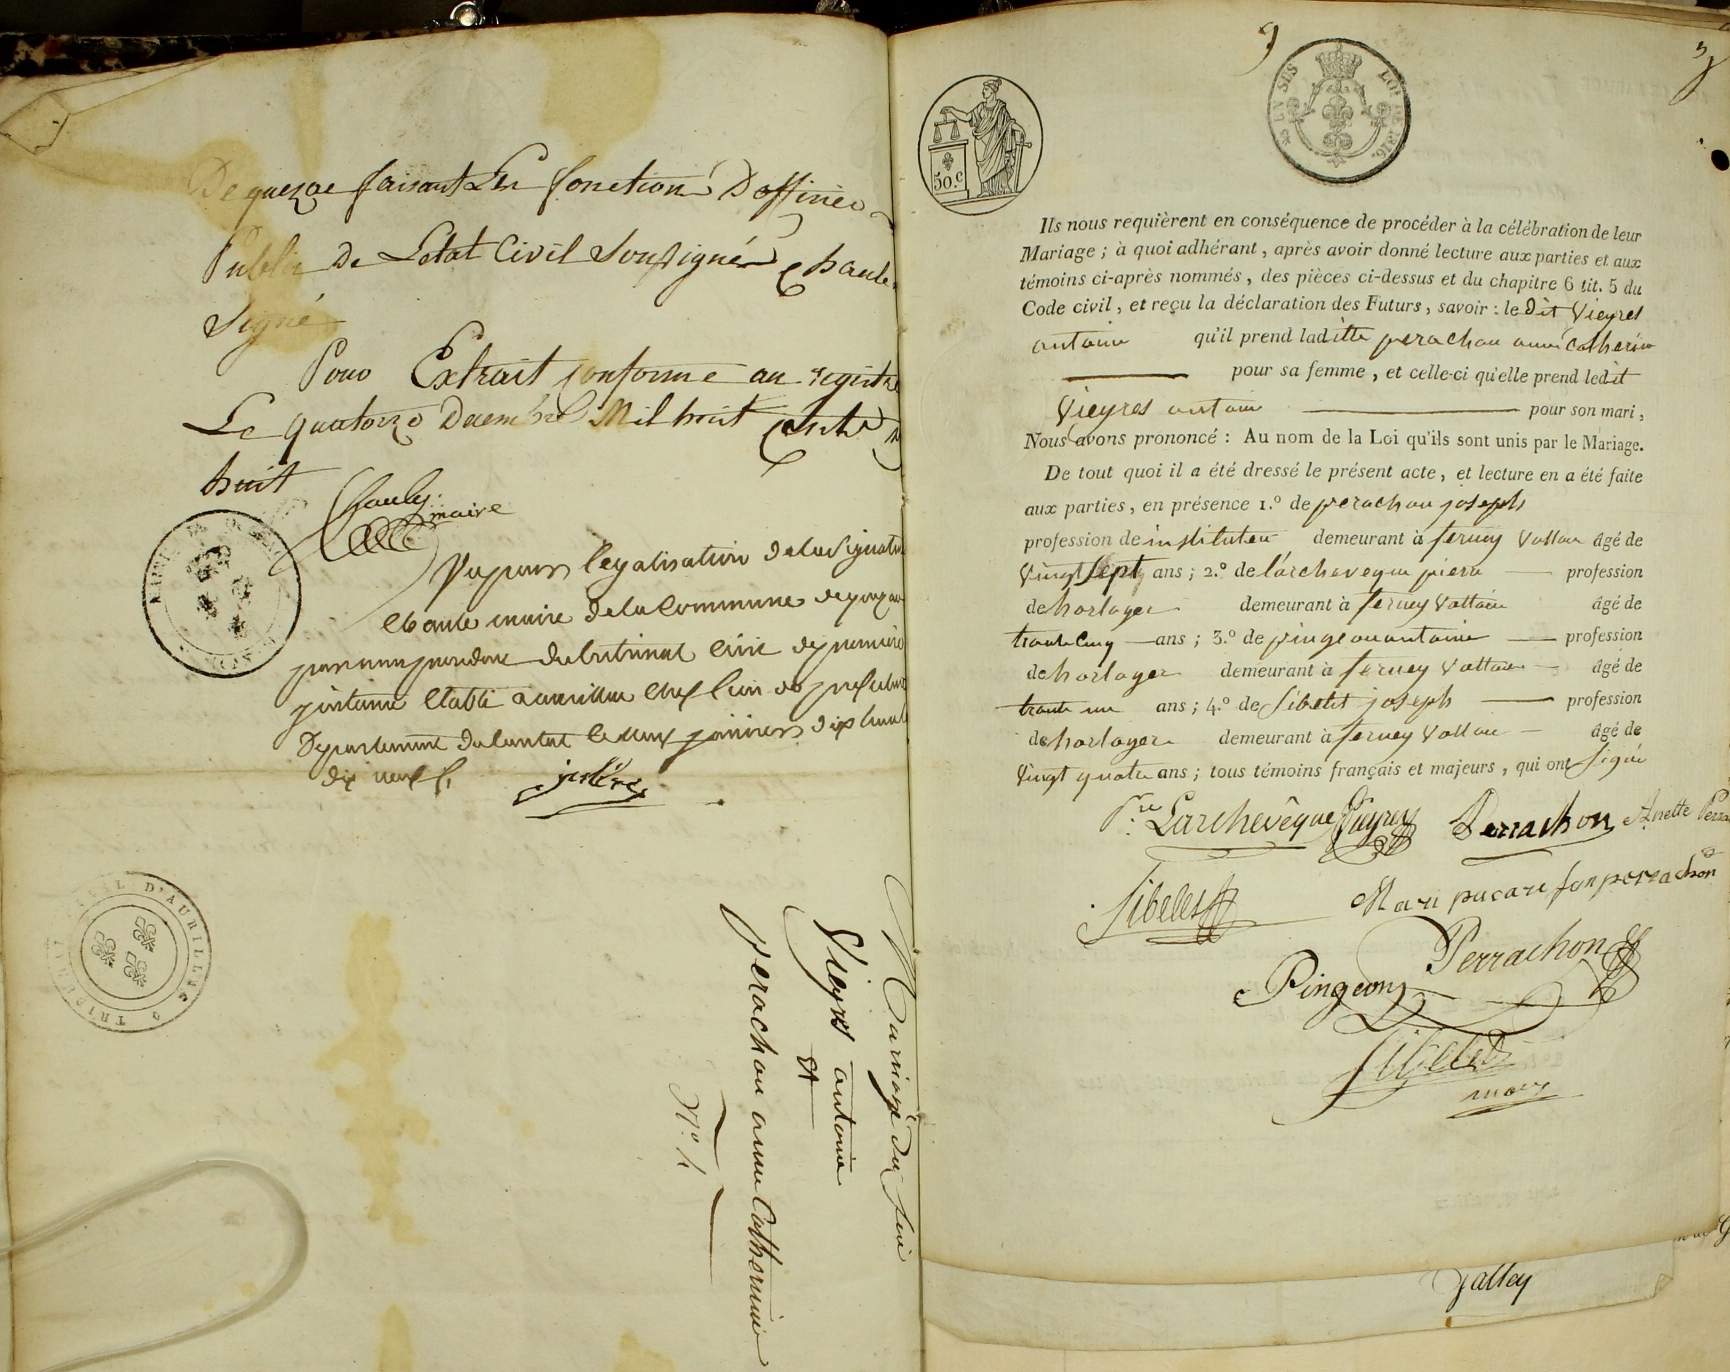 De quezac faisant Les fonctions D'officier
Public De Letat Civil Soussigné Chaule
Signé
Pour Extrait conforme au registre
Le quatorze Decembre Mil huit cent dix
huit
Chaule
maire
Vu pour legalisation de la Signature
Chaule maire de la Commune de
par nous president du tribunal civil de premiere
instance etabli a aurillac chef lieu de prefecture
Departement du Cantal le deux janvier dix huit
dix neuf
TRIBUNAL CIVIL D'AURILLAC
Mariage du
Vieyres antoine
et
perachon anne Catherine
N.º
50.c
EN SUS
LOI DE 1816.
Ils nous requièrent en conséquence de procéder à la célébration de leur
Mariage ; à quoi adhérant, après avoir donné lecture aux parties et aux
témoins ci-après nommés, des pièces ci-dessus et du chapitre 6 tit. 5 du
Code civil, et reçu la déclaration des Futurs, savoir : le dit Vieyres
antoine qu'il prend laditte perachon anne Catherine
pour sa femme, et celle-ci qu'elle prend ledit
Vieyres antoine pour son mari,
Nous avons prononcé : Au nom de la Loi qu'ils sont unis par le Mariage.
De tout quoi il a été dressé le présent acte, et lecture en a été faite
aux parties, en présence 1.º de perachon joseph
profession de instituteur demeurant à ferney Voltaire âgé de
Vingt Sept ans ; 2.º de l'archeveque piere profession
de horloger demeurant à ferney Voltaire âgé de
trante Cinq ans ; 3.º de pingeon antoine profession
de horloger demeurant à ferney Voltaire âgé de
trante un ans ; 4.º de Sibelet joseph profession
de horloger demeurant à ferney Voltaire âgé de
Vingt quatre ans ; tous témoins français et majeurs, qui ont Signé
Pre Larchevêque Vieyres Perrachon Anette Perra
Sibelet Mari pacare fan perrachon
Perrachon
Pingeon
Sibelet
maire